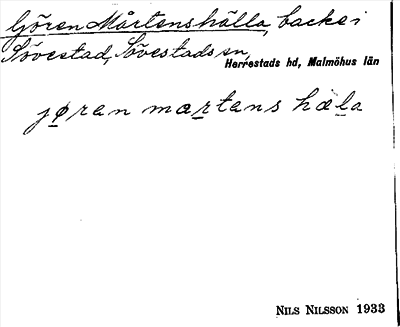 Gören Mårtenshälla, backe i
Sövestad, Sövestads sn,
Herrestads hd, Malmöhus län
jøren mærtens hæla
NILS NILSSON 1933